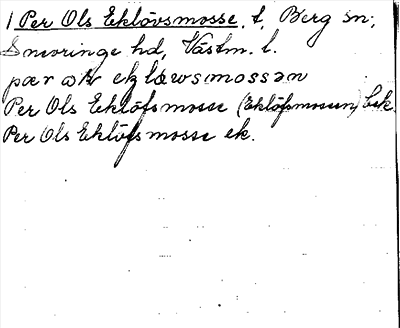 1 Per Ols Eklövsmosse, t, Berg sn;
Snevringe hd, Västm. l.
pær eklæwsmossən
Per Ols Eklöfsmosse (Eklöfsmossen) bek.
Per Ols Eklöfsmosse ek.